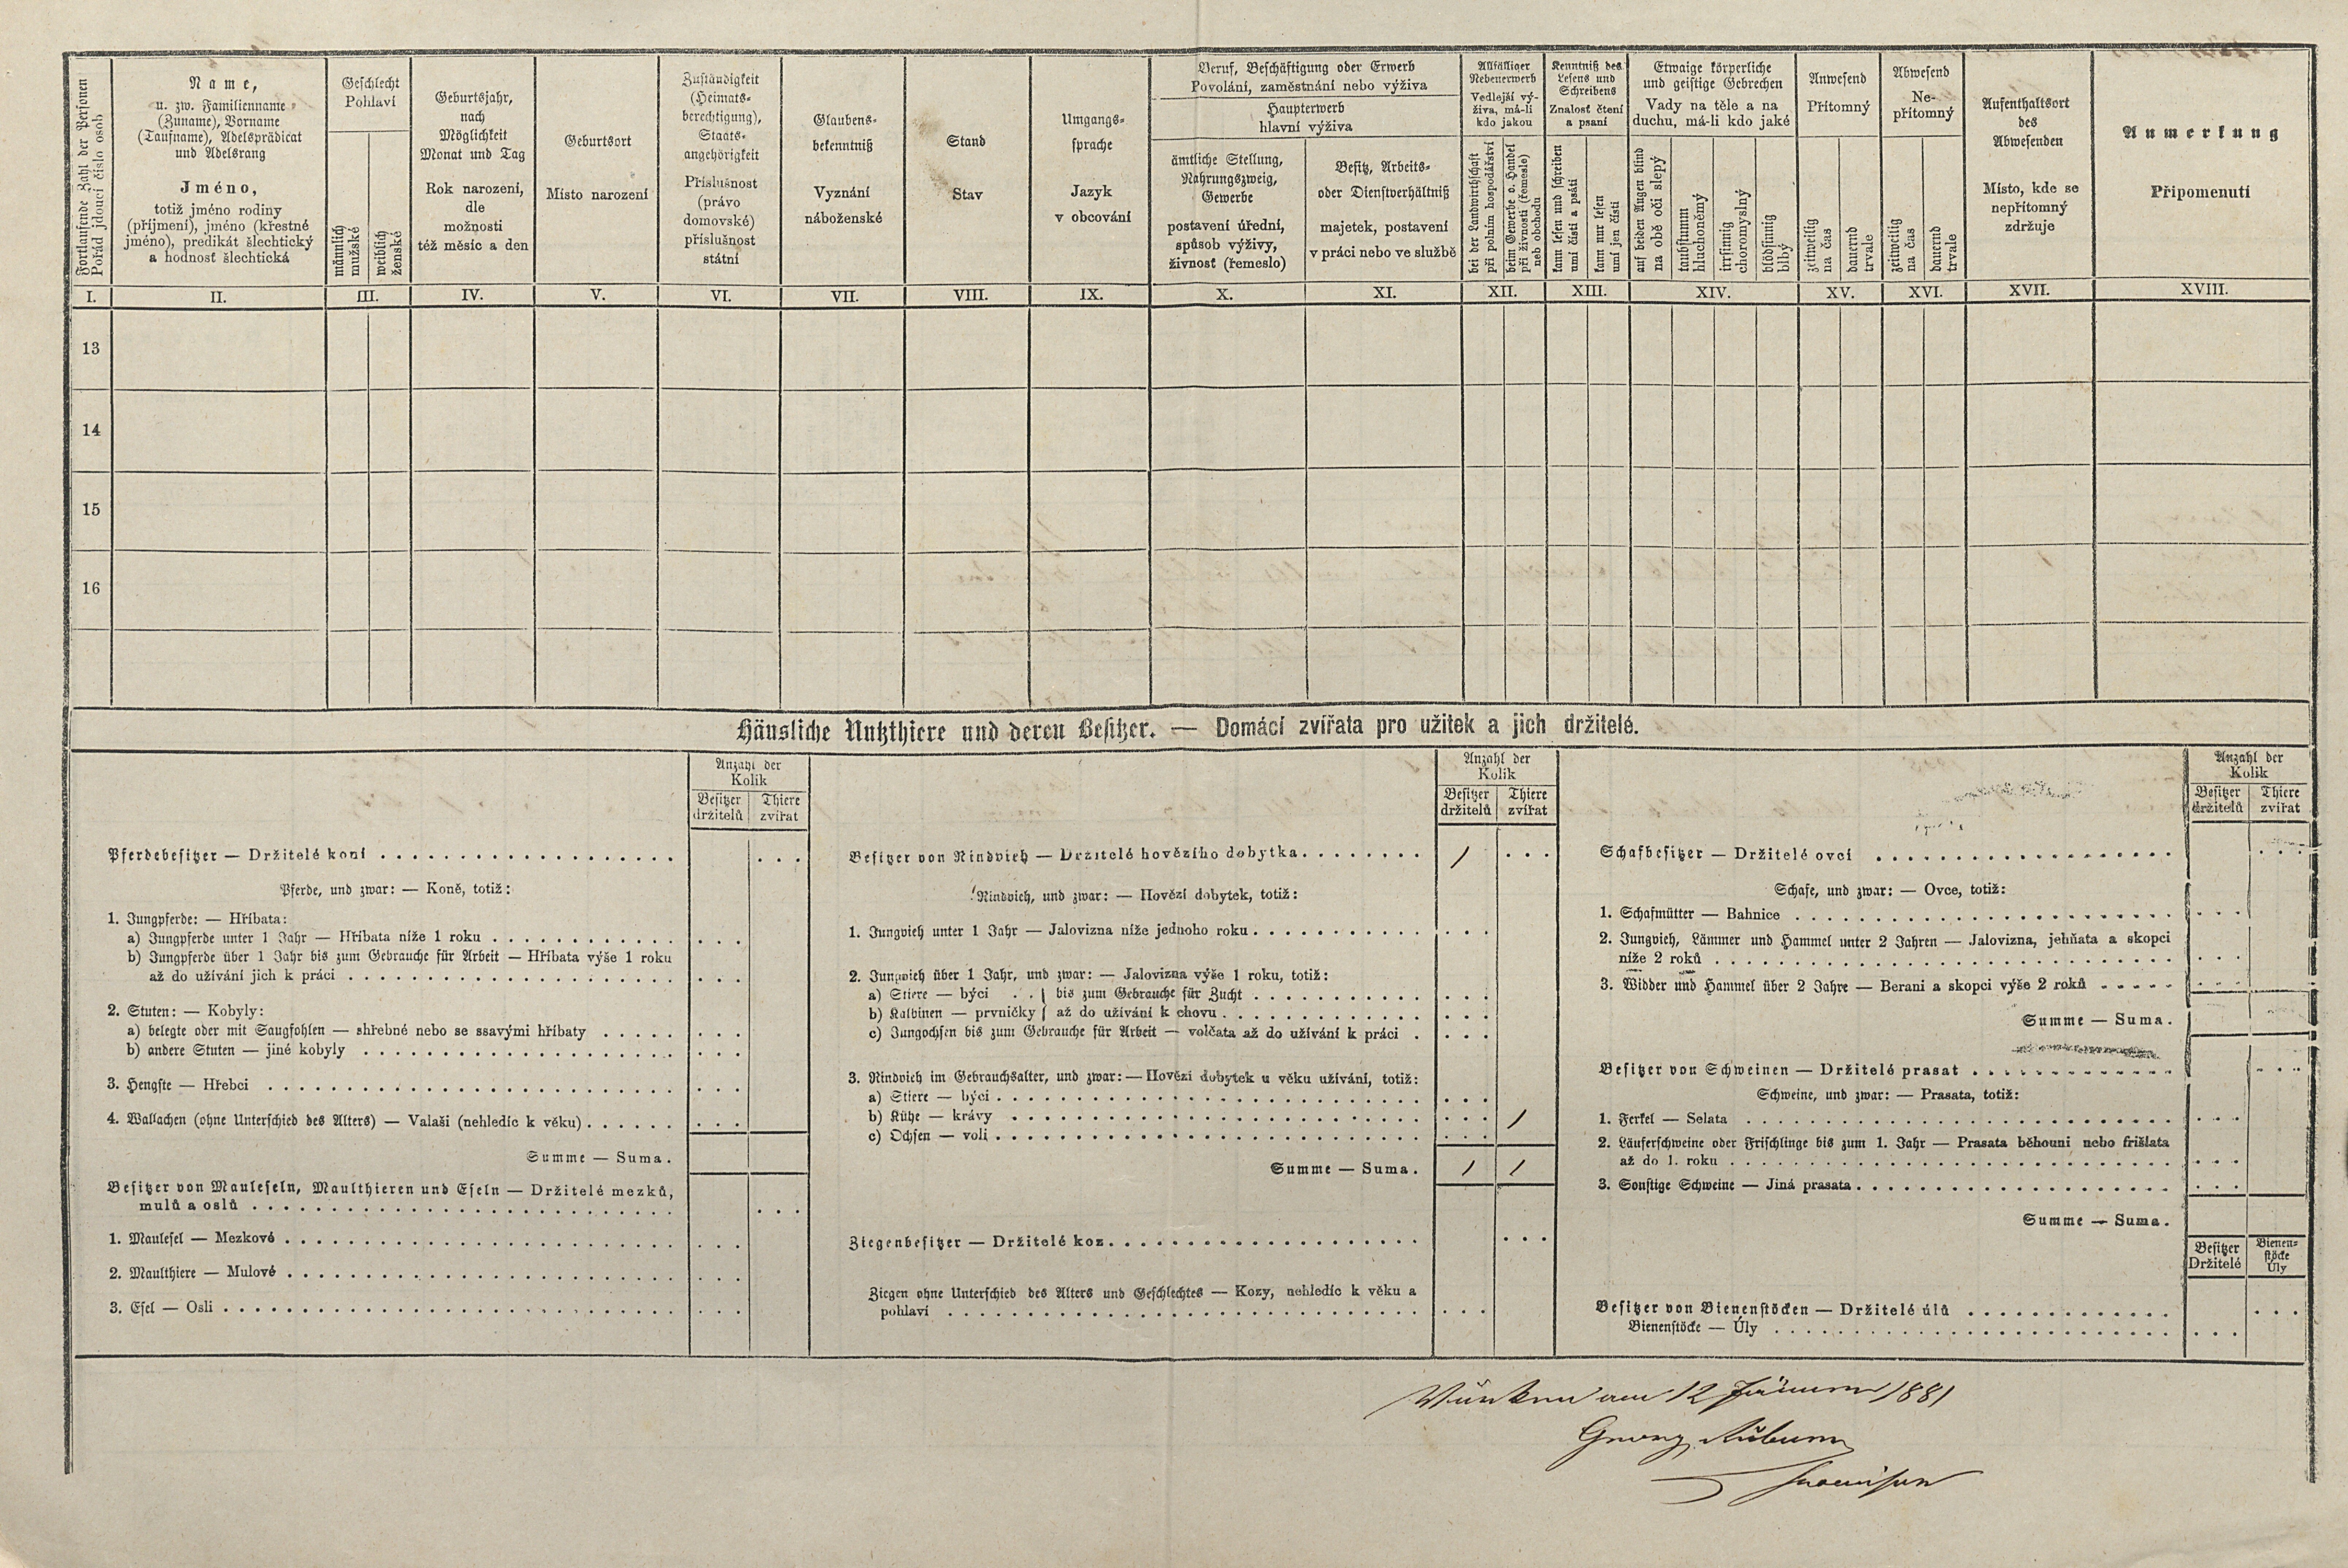 Fortlaufende Zahl der Personen
Pořád jdoucí číslo osob
Name,
u. zw. Familienname
(Zuname), Vorname
(Taufname), Adelsprädicat
und Adelsrang
Jméno,
totiž jméno rodiny
(příjmení), jméno (křestné
jméno), predikát šlechtický
a hodnosť šlechtická
Geschlecht
Pohlaví
männlich
mužské
weiblich
ženské
Geburtsjahr,
nach
Möglichkeit
Monat und Tag
Rok narození,
dle
možnosti
též měsíc a den
Geburtsort
Místo narození
Zuständigkeit
(Heimats-
berechtigung),
Staats-
angehörigkeit
Příslušnost
(právo
domovské)
příslušnost
státní
Glaubens-
bekenntniß
Vyznání
náboženské
Stand
Stav
Umgangs-
sprache
Jazyk
v obcování
Beruf, Beschäftigung oder Erwerb
Povolání, zaměstnání nebo výživa
Haupterwerb
hlavní výživa
ämtliche Stellung,
Nahrungszweig,
Gewerbe
postavení úřední,
spůsob výživy,
živnosť (řemeslo)
Besitz, Arbeits-
oder Dienstverhältniß
majetek, postavení
v práci nebo ve službě
Allfälliger
Nebenerwerb
Vedlejší vý-
živa, má-li
kdo jakou
bei der Landwirthschaft
při polním hospodářství
beim Gewerbe o. Handel
při živnosti (řemesle)
neb obchodu
Kenntniß des
Lesens und
Schreibens
Znalosť čtení
a psaní
kann lesen und schreiben
umí čísti a psáti
kann nur lesen
umí jen čísti
Etwaige körperliche
und geistige Gebrechen
Vady na těle a na
duchu, má-li kdo jaké
auf beiden Augen blind
na obě oči slepý
taubstumm
hluchoněmý
irrsinnig
choromyslný
blödsinnig
blbý
Anwesend
Přítomný
zeitweilig
na čas
dauernd
trvale
Abwesend
Ne-
přítomný
zeitweilig
na čas
dauernd
trvale
Aufenthaltsort
des
Abwesenden
Místo, kde se
nepřítomný
zdržuje
Anmerkung
Připomenutí
I. II. III. IV. V. VI. VII. VIII. IX. X. XI. XII. XIII. XIV. XV. XVI. XVII. XVIII.
13
14
15
16
Häusliche Nutzthiere und deren Besitzer. — Domácí zvířata pro užitek a jich držitelé.
Anzahl der
Kolik
Besitzer
držitelů
Thiere
zvířat
Pferdebesitzer — Držitelé koní
Pferde, und zwar: — Koně, totiž:
1. Jungpferde: — Hříbata:
a) Jungpferde unter 1 Jahr — Hříbata níže 1 roku
b) Jungpferde über 1 Jahr bis zum Gebrauche für Arbeit — Hříbata výše 1 roku
až do užívání jich k práci
2. Stuten: — Kobyly:
a) belegte oder mit Saugfohlen — shřebné nebo se ssavými hříbaty
b) andere Stuten — jiné kobyly
3. Hengste — Hřebci
4. Wallachen (ohne Unterschied des Alters) — Valaši (nehledíc k věku)
Summe — Suma.
Besitzer von Mauleseln, Maulthieren und Eseln — Držitelé mezků,
mulů a oslů
1. Maulesel — Mezkové
2. Maulthiere — Mulové
3. Esel — Osli
Anzahl der
Kolik
Besitzer
držitelů
Thiere
zvířat
Besitzer von Rindvieh — Držitelé hovězího dobytka 1
Rindvieh, und zwar: — Hovězí dobytek, totiž:
1. Jungvieh unter 1 Jahr — Jalovizna níže jednoho roku
2. Jungvieh über 1 Jahr, und zwar: — Jalovizna výše 1 roku, totiž:
a) Stiere — býci . . } bis zum Gebrauche für Zucht
b) Kalbinen — prvničky } až do užívání k chovu
c) Jungochsen bis zum Gebrauche für Arbeit — volčata až do užívání k práci
3. Rindvieh im Gebrauchsalter, und zwar: — Hovězí dobytek u věku užívání, totiž:
a) Stiere — býci
b) Kühe — krávy 1
c) Ochsen — voli
Summe — Suma. 1 1
Ziegenbesitzer — Držitelé koz
Ziegen ohne Unterschied des Alters und Geschlechtes — Kozy, nehledíc k věku a
pohlaví
Anzahl der
Kolik
Besitzer
držitelů
Thiere
zvířat
Schafbesitzer — Držitelé ovcí
Schafe, und zwar: — Ovce, totiž:
1. Schafmütter — Bahnice
2. Jungvieh, Lämmer und Hammel unter 2 Jahren — Jalovizna, jehňata a skopci
níže 2 roků
3. Widder und Hammel über 2 Jahre — Berani a skopci výše 2 roků
Summe — Suma.
Besitzer von Schweinen — Držitelé prasat
Schweine, und zwar: — Prasata, totiž:
1. Ferkel — Selata
2. Läuferschweine oder Frischlinge bis zum 1. Jahr — Prasata běhouni nebo frišlata
až do 1. roku
3. Sonstige Schweine — Jiná prasata
Summe — Suma.
Besitzer
Držitelé
Bienen-
stöcke
Úly
Besitzer von Bienenstöcken — Držitelé úlů
Bienenstöcke — Úly
am 12 Jänner 1881
Georg